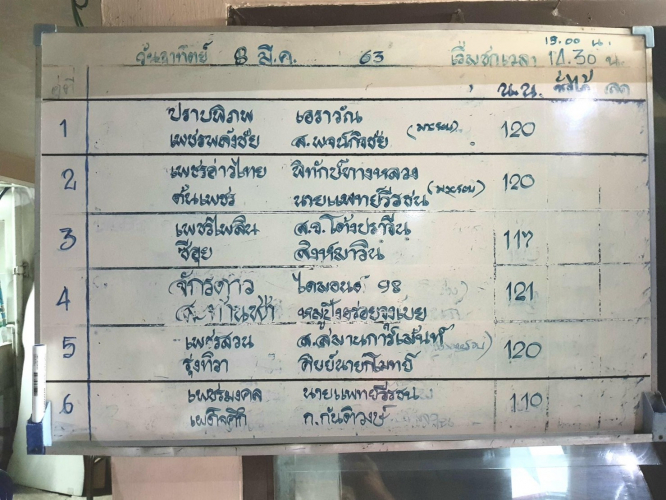 วันอาทิตย์ 8 มี.ค. 63 เริ่มชกเวลา 14.30 น.
13.00 น.
คู่ที่ น.น. ชั่งได้
1 ปราบพิภพ เอราวัณ 120
เพชรพลังชัย ส.พจน์กิจชัย
2 เพชรอ่าวไทย พิทักษ์ทางหลวง 120
ต้นเพชร นายแพทย์วีรชน
3 เพชรไพลิน ส.จ.โต้งปราจีน 117
ซีอุย สิงห์มาวิน
4 จักรดาว ไดมอนด์ 98 121
ส. หมูปิ้งอร่อยจุงเบย
5 เพชรสวน ส.สมานการ์เม้นท์ 120
รุ่งทิวา ศิษย์นายกโมทย์
6 เพชรมงคล นายแพทย์วีรชน 110
ก.กันติวงษ์